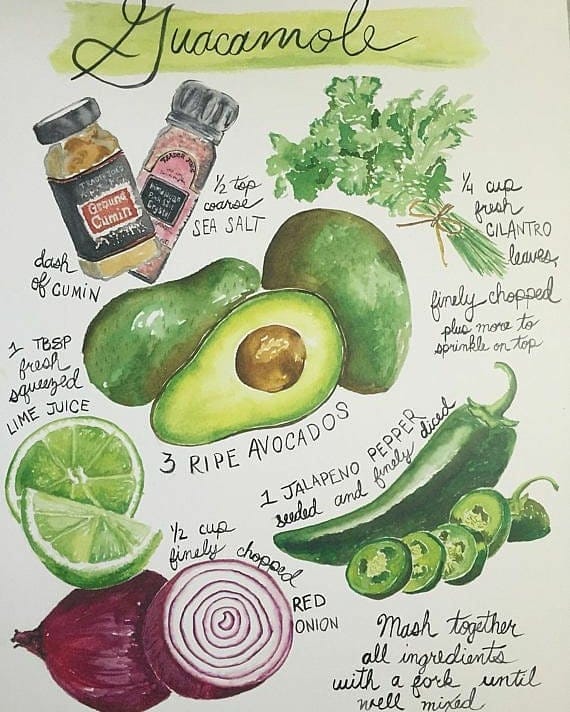 Guacamole
TRADER JOE'S
Ground
Cumin
TRADER JOE'S
Himalayan
Pink Salt
Crystals
½ tsp
coarse
SEA SALT
¼ cup
fresh
CILANTRO
leaves,
finely chopped
plus more to
sprinkle on top
dash
of CUMIN
1 TBSP
fresh
squeezed
LIME JUICE
3 RIPE AVOCADOS
1 JALAPENO PEPPER
seeded and finely diced
½ cup
finely chopped
RED
ONION
Mash together
all ingredients
with a fork until
well mixed